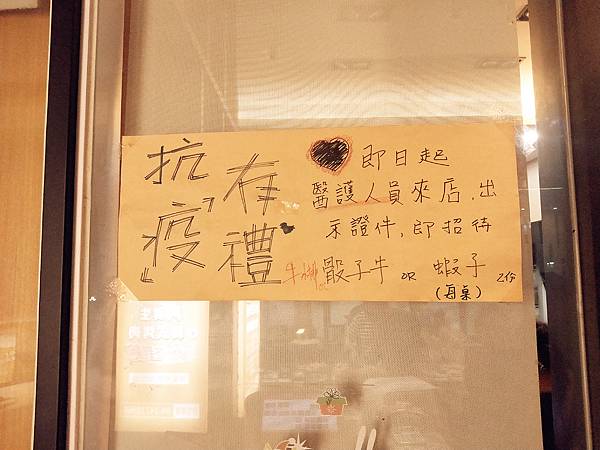 抗疫
有禮
即日起
醫護人員來店,出
示證件,即招待
骰子牛 OR 蝦子 2份
(每桌)